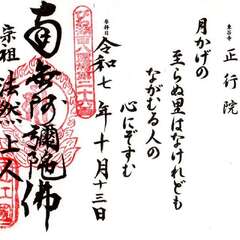 東山寺
正行院
月かげの
至らぬ里はなけれども
ながむる人の
心にぞすむ
参拝日
令和七年十月十三日
南無阿彌陀佛
宗祖法然上人